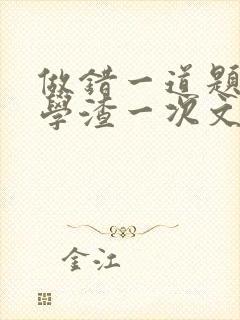 做错一道题
學渣一次文
金江